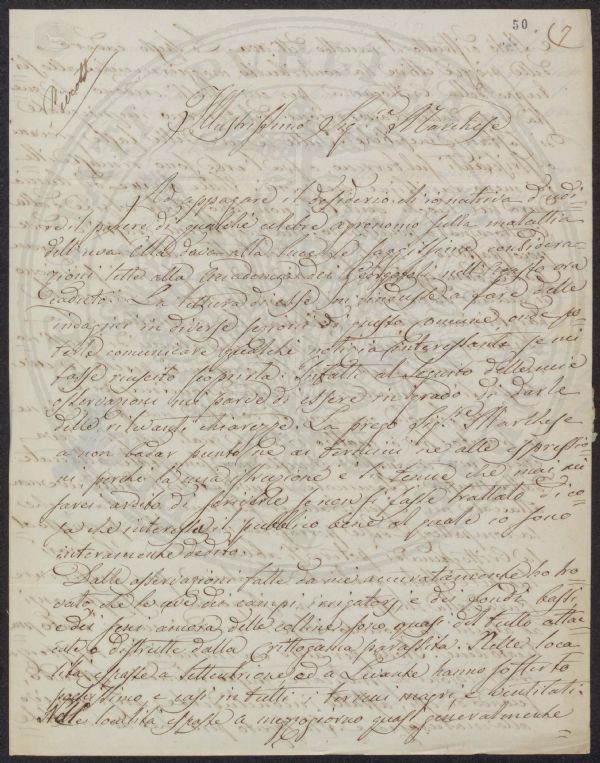 50 7
Illustrissimo Sig.r Marchese
Ad appagare il desiderio di
re il parere di qualche celebre agronomo sulla malattia
dell'uva Ella dava alla luce le sue considera
zioni lette alla Accademia dei Georgofili nell'Agosto ora
caduto. La lettura di esse m'indusse a fare delle
indagini in diverse sezioni di questa Comune, onde po
terle comunicare qualche notizia interessante, se mi
fosse riuscito scoprirla. Infatti al seguito delle mie
osservazioni mi parve di essere in grado di darle
delle rilevanti chiarezze. La prego Sig.re Marchese
a non badar punto ne ai termini ne alle espressio
ni, perché la mia istruzione è sì tenue che mai mi
sarei ardito di scriverle se non si fosse trattato di co
sa che interessa il pubblico bene al quale io sono
interamente dedito.
Dalle osservazioni fatte da me accuratamente ho tro
vato che le viti dei campi, e dei fondi bassi
e dei seni ancora delle colline sono quasi del tutto attac
cate e distrutte dalla Crittogama parassita. Nelle loca
lità esposte a Settentrione ed a Levante hanno sofferto
pochissimo, e così in tutti i terreni magri e ventilati.
Nelle località esposte a mezzogiorno quasi generalmente